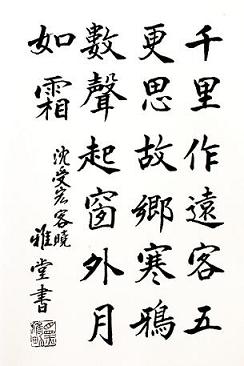 千里作遠客五
更思故鄉寒鴉
數聲起窗外月
如霜
沈受宏客曉
雅堂書